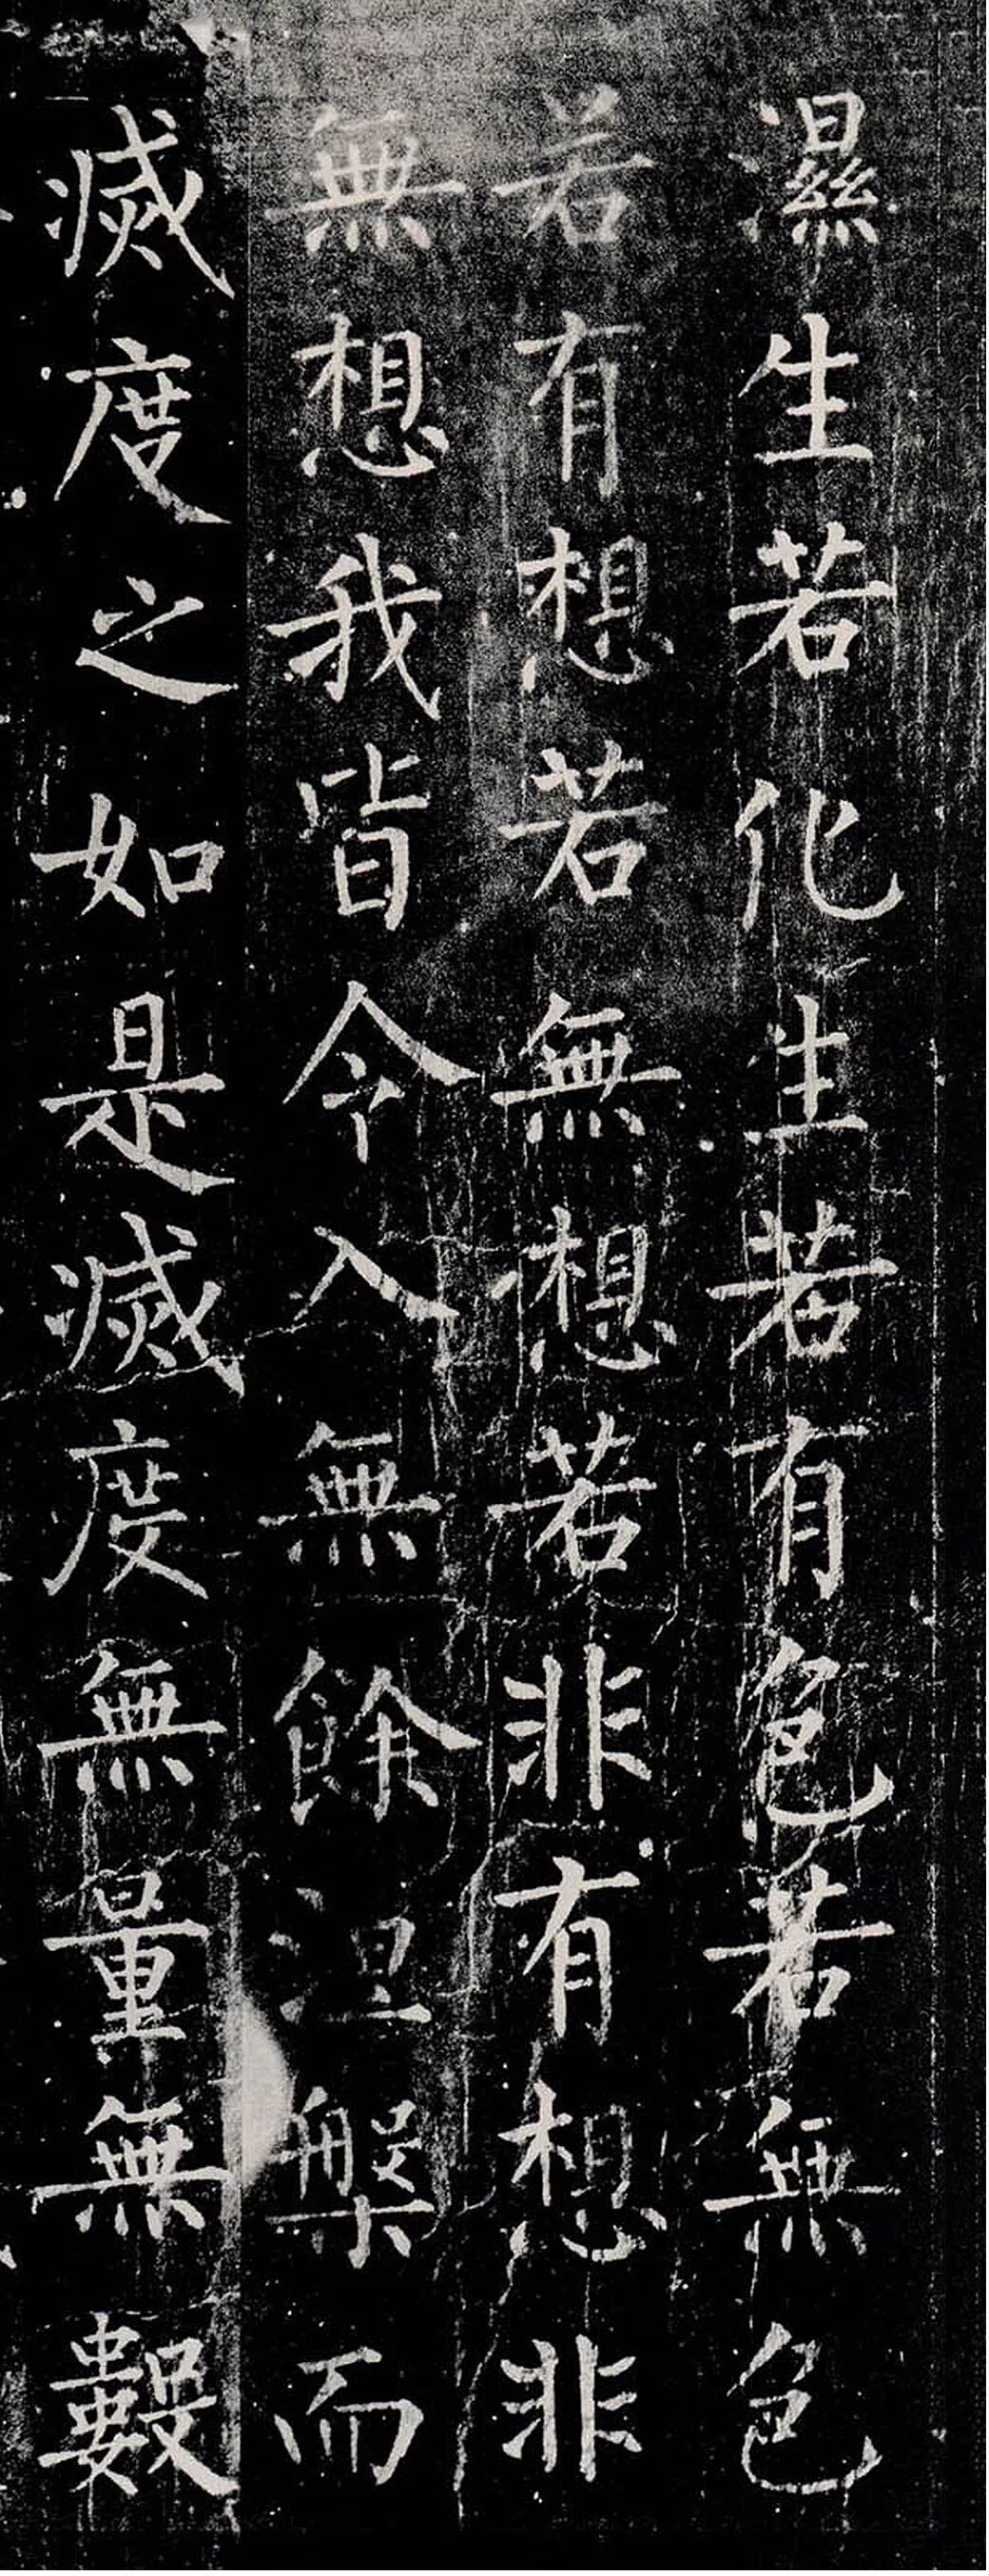 濕生若化生若有色若無色
若有想若無想若非有想非
無想我皆令入無餘涅槃而
滅度之如是滅度無量無數